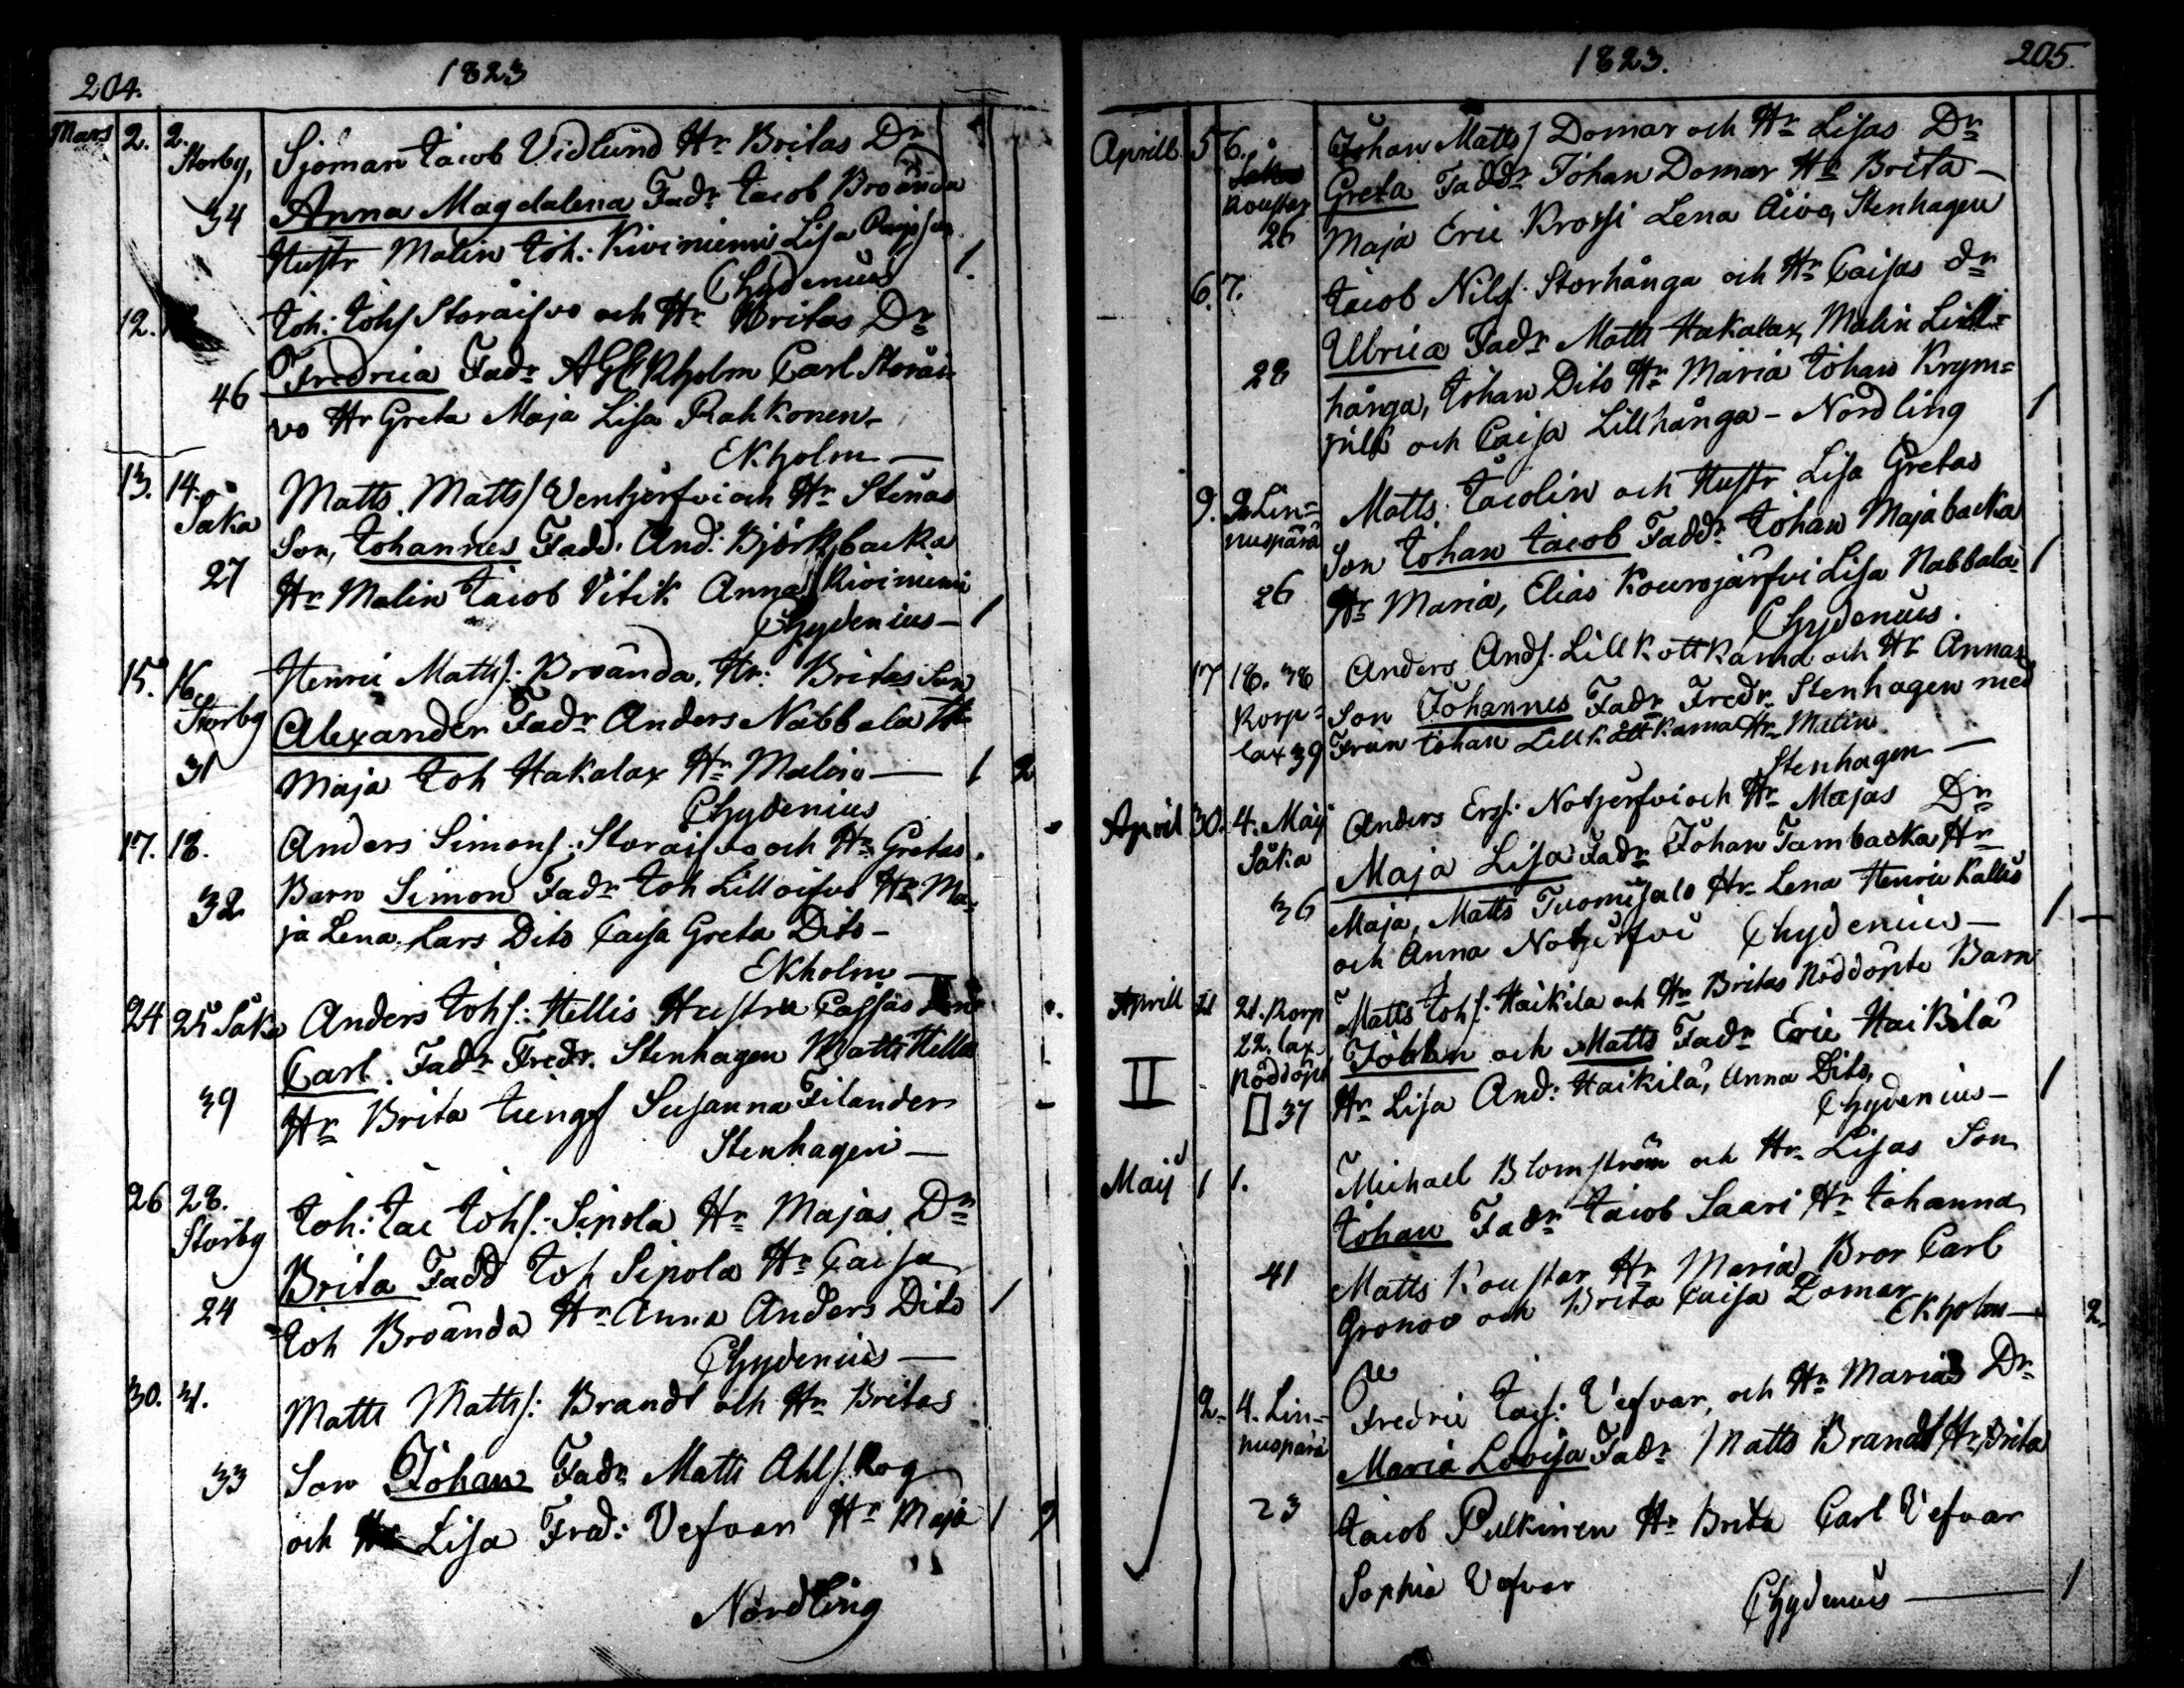 204. 1823
Mars 2. 2. Storby, Sjöman Jacob Vidlund Hr Britas Dr
34 Anna Magdalena Fadr Jacob Broända
Hustr Malin Joh: Kiviniemi Lisa
Chydenius 1.
12. Joh: Johs Storåisvo och Hr Britas Dr
Fredrica Fadr AGEkholm Carl Storåi-
46 vo Hr Greta Maja Lisa Rahkonen
Ekholm —
13. 14. Såka Matts Matts/ Ventjerfvi och Hr Stinas
Son, Johannes Fadd. And: Björkbacka
27 Hr Malin Jacob Vitik Anna Kiviniemi
Chydenius — 1
15. 16. Storby Henric Matts/: Broända. Hr: Britas Son
Alexander Fadr Anders Nabbala Hr
31 Maja Joh Hakalax Hr Malin — 1 2
Chydenius
17. 18. Anders Simons/: Storåisvo och Hr Gretas
32 Barn Simon Fadr Joh Lillåisvo Hr Ma-
ja Lena, Lars Dito Caisa Greta Dito —
Ekholm —
24 25 Såka Anders Johs/: Hellis Hustru Cajsas
Carl. Fadr Fredr. Stenhagen Matts Hellis
39 Hr Brita Jungf Susanna Filander
Stenhagen —
26 28. Storby Joh: Jac Johs/: Sipola Hr Majas Dr
Brita Fadd Joh Sipola Hr Caisa
24 Joh Broända Hr Anna Anders Dito 1
Chydenius —
30. 31. Matts Matts/: Brandt och Hr Britas
33 Son Johan Fadr Matts Ahls/. Rog
och Hr Lisa Fred: Vefvar Hr Maja 1
Nordling
1823. 205.
Aprill 5 6. Johan Matts/ Domar och Hr Lisas Dr
Såka Greta Faddr Johan Domar Hr Brita —
Koustar 26 Maja Eric Krossi Lena Åivo, Stenhagen
6. 7. Jacob Nils/: Storhånga och Hr Caisas dr
Ulrica Fadr Matts Hakalax, Malin Lill=
28 hånga, Johan Dito Hr Maria Johan Krym=
pilt och Caisa Lillhånga — Nordling 1
9. 9 Lin= Matts Jacolin och Hustr Lisa Gretas
nuspärä Son Johan Jacob Faddr Johan Majabacka
26 Hr Maria, Elias Kourojärfvi Lisa Nabbala 1
Chydenius.
17 18. 38 Anders Ands/. Lillkottkama och Hr Annas
Korp= Son Johannes Fadr Fredr. Stenhagen med
lax 39 Frun Johan Lillkottkama Hr Malin
Stenhagen —
April 30. 4. Maij Anders Ers/: Notjerfvi och Hr Majas Dr
Såka Maja Lisa Fadr Johan Tambacka Hr
36 Maja, Matts Tuomisalo Hr Lena Henric Kallis
och Anna Notjerfvi Chydenius — 1
Aprill 21 21. Korp Matts Johs/: Haikila och Hr Britas Nöddöpte Barn
22. lax Johan och Matts Fadr Eric Haikila
II Nöddöpt 37 Hr Lisa And: Haikila, Anna Dito, 1
Chydenius —
Maij 1 1. Michael Blomström och Hr Lisas Son
Johan Fadr Jacob Saari Hr Johanna
41 Matts Koustar Hr Maria Bror Carl
Gronov och Brita Caisa Domar
Ekholm — 2.
2. 4. Lin= Fredric Jacs/: Vefvar, och Hr Marias Dr
nuspärä Maria Lovisa Fadr Matts Brandt Hr Brita
23 Jacob Pulkinen Hr Brita Carl Vefvar
Sophia Vefvar Chydenius — 1